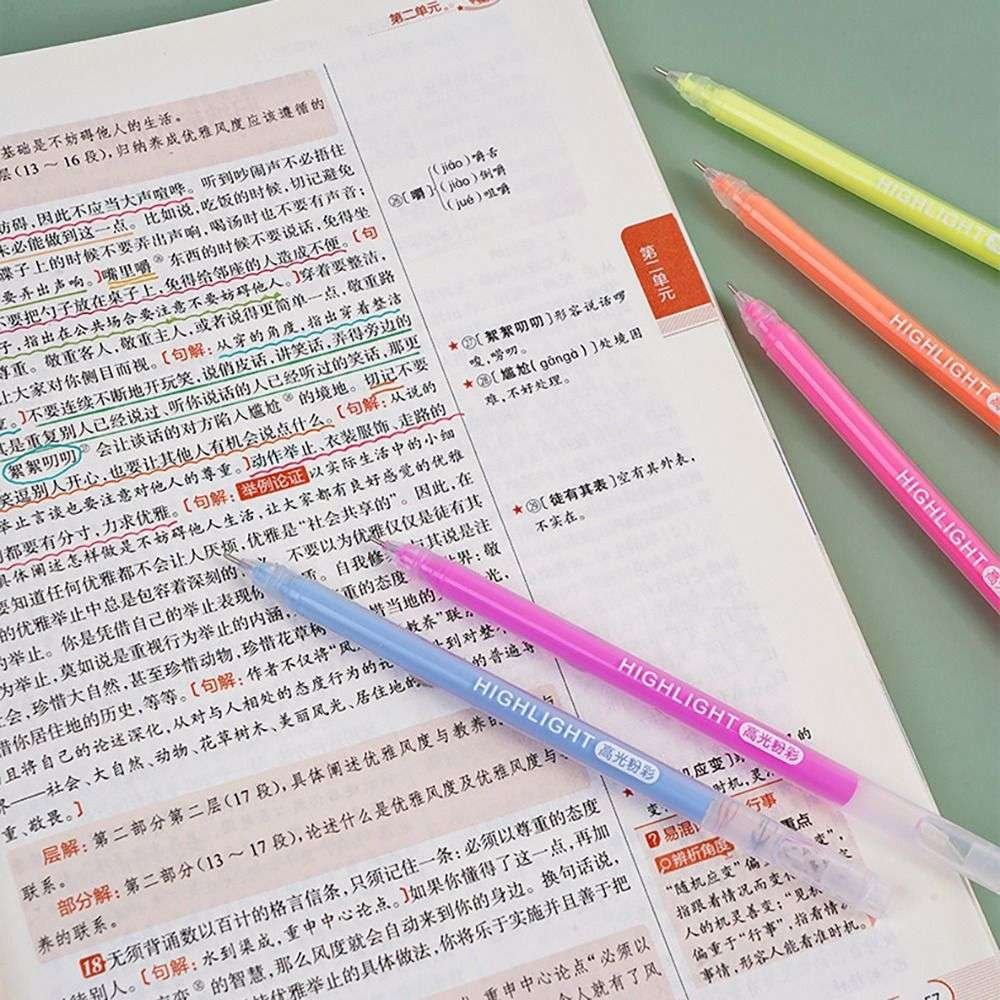 第二单元
基础是不妨碍他人的生活。
层(13～16段),归纳养成优雅风度应该遵循的
妨碍,因此不应当大声喧哗。听到吵闹声不必捂住
未必能做到这一点。比如说,吃饭的时候,切记避免
碟子上的时候不要弄出声响,喝汤时也不要有声音;
要弄出声响。]嘴里嚼㉖东西的时候不要说话,免得坐
不要把勺子放在桌子上,免得给邻座的人造成不便。[句
子,指出在公共场合要注意不要妨碍他人。]穿着要整洁,
尊重。敬重客人,敬重主人,或者说得更简单一点,敬重路
让大家对你侧目而视。[句解:从穿的角度,指出穿着整洁
]不要连续不断地开玩笑,说俏皮话,讲笑话,弄得旁边的
其是重复别人已经说过、听你说话的人已经听过的笑话,那更
絮絮叨叨㉗会让谈话的对方陷入尴尬㉘的境地。切记不要
笑逗别人开心,也要让其他人有机会说点什么。[句解:从说的
举止言谈也要注意对他人的尊重。]动作举止、衣装服饰、走路的
都要有分寸,力求优雅。[句解:举例论证 以实际生活中的小细
具体阐述怎样做是不妨碍他人生活,让大家都有良好感觉的优雅
要知道任何优雅都不会让人厌烦,优雅是“社会共享的”。因此,在
的优雅举止中总是包容着深刻的 不要以为优雅仅仅是徒有其
举止。你是凭借自己的举止表现你 重。自我修 与其说是注
为举止,莫如说是重视行为举止的内涵, 重的态 世界,敬
社会,珍惜大自然,甚至珍惜动物,珍惜花草树 惜当地的 风光,
惜你居住地的历史,等等。[句解:作者不仅将“风 教养”联
且将自己的论述深化,从对与人相处的态度行为的论 到对整
界——社会、大自然、动物、花草树木、美丽风光、居住地 的普遍尊
重、敬畏。]
层解:第二部分第二层(17段),具体阐述优雅风度与教养的
联系。
部分解:第二部分(13～17段),论述什么是优雅风度及优雅风度与
养的联系。
18 无须背诵数以百计的格言信条,只须记住一条:必须以尊重的态度
待别人。[句解:水到渠成,重申中心论点。]如果你懂得了这一点,再加
应变㉚的智慧,那么风度就会自动来到你的身边。换句话说,
优雅举止的具体做法,你将乐于实施并且善于把
重申中心论点“必须以
人就有了风
㉖[嚼]
(jiáo)嚼舌
(jiào)倒嚼
(jué)咀嚼
第二单元
★㉗[絮絮叨叨]形容说话啰
唆,唠叨。
★㉘[尴尬(gāngà)]处境困
难,不好处理。
★㉙[徒有其表]空有其外表,
不实在。
应变]
时机,灵
行事
?易混 重点
辨析角度
“随机应变”偏
指跟着情况而变
人的机灵善变;“见
偏重于“行事”,指看情
事情,形容人能看准时机。
HIGHLIGHT
HIGHLIGHT 高
HIGHLIGHT 高光粉
HIGHLIGHT 高光粉彩
HIGHLIGHT 高光粉彩